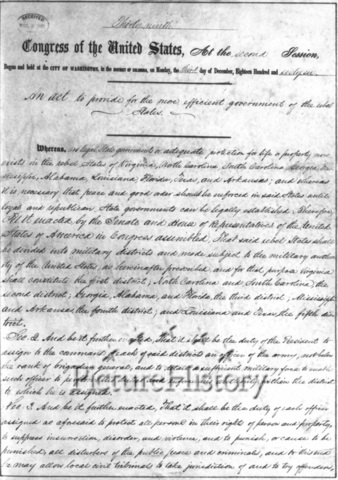 Thirty-ninth
Congress of the United States, At the second Session,
Begun and held at the CITY OF WASHINGTON, in the DISTRICT OF COLUMBIA, on Monday, the third day of December, Eighteen Hundred and sixty-six
AN ACT to provide for the more efficient government of the rebel
States.
Whereas, no legal State governments or adequate protection for life or property now
exists in the rebel States of Virginia, North Carolina, South Carolina, Georgia,
Mississippi, Alabama, Louisiana, Florida, Texas, and Arkansas; and whereas
it is necessary that peace and good order should be enforced in said States until
loyal and republican State governments can be legally established: Therefore,
Be it enacted by the Senate and House of Representatives of the United
States of America in Congress assembled, That said rebel States shall
be divided into military districts and made subject to the military author-
ity of the United States, as hereinafter prescribed, and for that purpose Virginia
shall constitute the first district; North Carolina and South Carolina the
second district; Georgia, Alabama, and Florida the third district; Mississippi
and Arkansas the fourth district; and Louisiana and Texas the fifth dis-
trict.
Sec 2. And be it further enacted, That it shall be the duty of the President to
assign to the command of each of said districts an officer of the army, not below
the rank of brigadier general, and to detail a sufficient military force to enable
such officer to perform his duties and enforce his authority within the district
to which he is assigned.
Sec 3. And be it further enacted, That it shall be the duty of each officer
assigned as aforesaid to protect all persons in their rights of person and property,
to suppress insurrection, disorder, and violence, and to punish, or cause to be
punished, all disturbers of the public peace and criminals, and to this end
he may allow local civil tribunals to take jurisdiction of and to try offenders,
Picture History